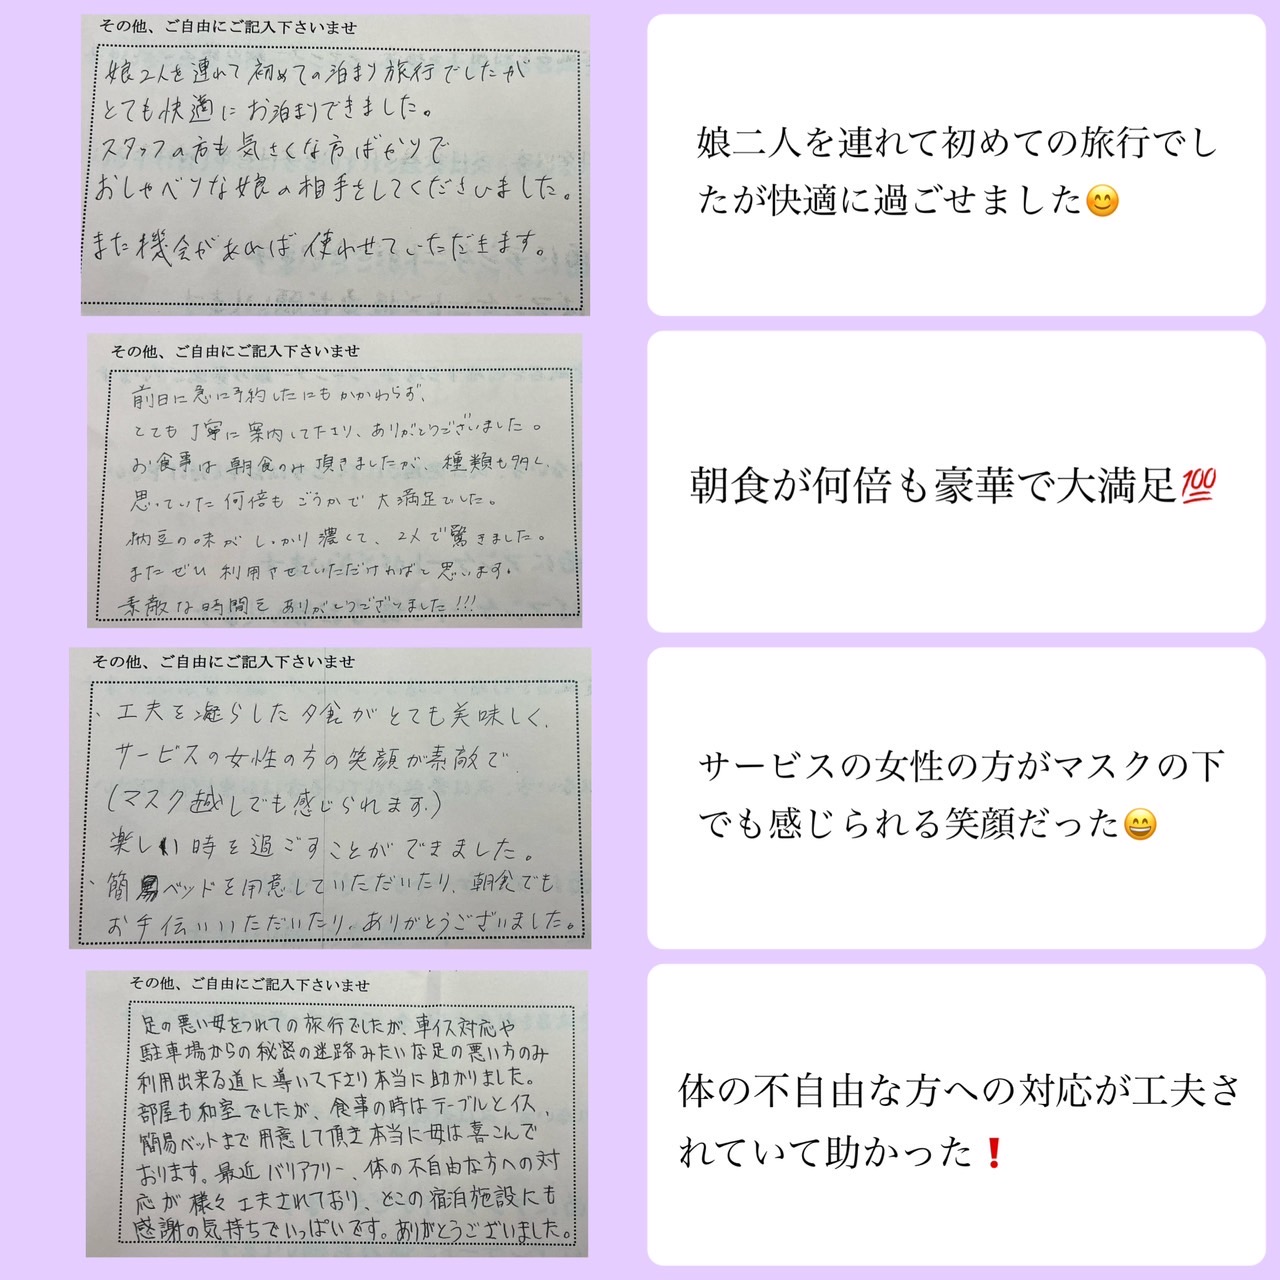 その他、ご自由にご記入下さいませ
娘2人を連れて初めての泊まり旅行でしたが
とても快適にお泊まりできました。
スタッフの方も気さくな方ばかりで
おしゃべりな娘の相手をしてくださいました。
また機会があれば使わせていただきます。
娘二人を連れて初めての旅行でし
たが快適に過ごせました😊
その他、ご自由にご記入下さいませ
前日に急に予約したにもかかわらず、
とても丁寧に案内して下さり、ありがとうございました。
お食事は朝食のみ頂きましたが、種類も多く
思っていた何倍もごうかで大満足でした。
納豆の味がしっかり濃くて、2人で驚きました。
またぜひ利用させていただければと思います。
素敵な時間をありがとうございました!!!
朝食が何倍も豪華で大満足💯
その他、ご自由にご記入下さいませ
、工夫を凝らした夕食がとても美味しく、
サービスの女性の方の笑顔が素敵で
(マスク越しでも感じられます。)
楽しい時を過ごすことができました。
、簡易ベッドを用意していただいたり、朝食でも
お手伝いいただいたり、ありがとうございました。
サービスの女性の方がマスクの下
でも感じられる笑顔だった😄
その他、ご自由にご記入下さいませ
足の悪い母をつれての旅行でしたが、車イス対応や
駐車場からの秘密の迷路みたいな足の悪い方のみ
利用出来る道に導いて下さり本当に助かりました。
部屋も和室でしたが、食事の時はテーブルとイス、
簡易ベットまで用意して頂き本当に母は喜こんで
おります。最近バリアフリー、体の不自由な方への対
応が様々工夫されており、どこの宿泊施設にも
感謝の気持ちでいっぱいです。ありがとうございました。
体の不自由な方への対応が工夫さ
れていて助かった❗